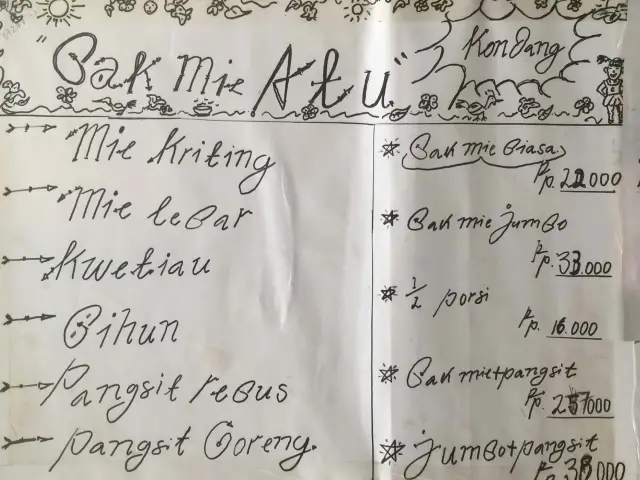 "Bakmie Atu"
Kondang
Mie kriting
Mie lebar
Kwetiau
Bihun
Pangsit rebus
Pangsit Goreng.
Bakmie Biasa
Rp. 22.000
Bakmie jumbo
Rp. 33.000
1/2 porsi
Rp. 16.000
Bakmie+pangsit
Rp.
jumbo+pangsit
Rp. 38.000